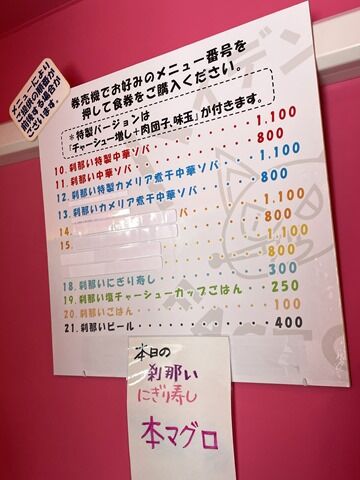 メニューにより
ご提供の順番が
前後する場合が
ございます。
券売機でお好みのメニュー番号を
押して食券をご購入ください。
*特製バージョンは
「チャーシュー増し+肉団子、味玉」が付きます。
10.刹那い特製中華ソバ・・・・・・・1.100
11.刹那い中華ソバ・・・・・・・800
12.刹那い特製カメリア煮干中華ソバ・・1.100
13.刹那いカメリア煮干中華ソバ・・・800
14. 1.100
15. 800
1.100
800
18.刹那いにぎり寿し・・・・・・・300
19.刹那い塩チャーシューカップごはん・250
20.刹那いごはん・・・・・・・100
21.刹那いビール・・・・・・・400
本日の
刹那い
にぎり寿し
本マグロ